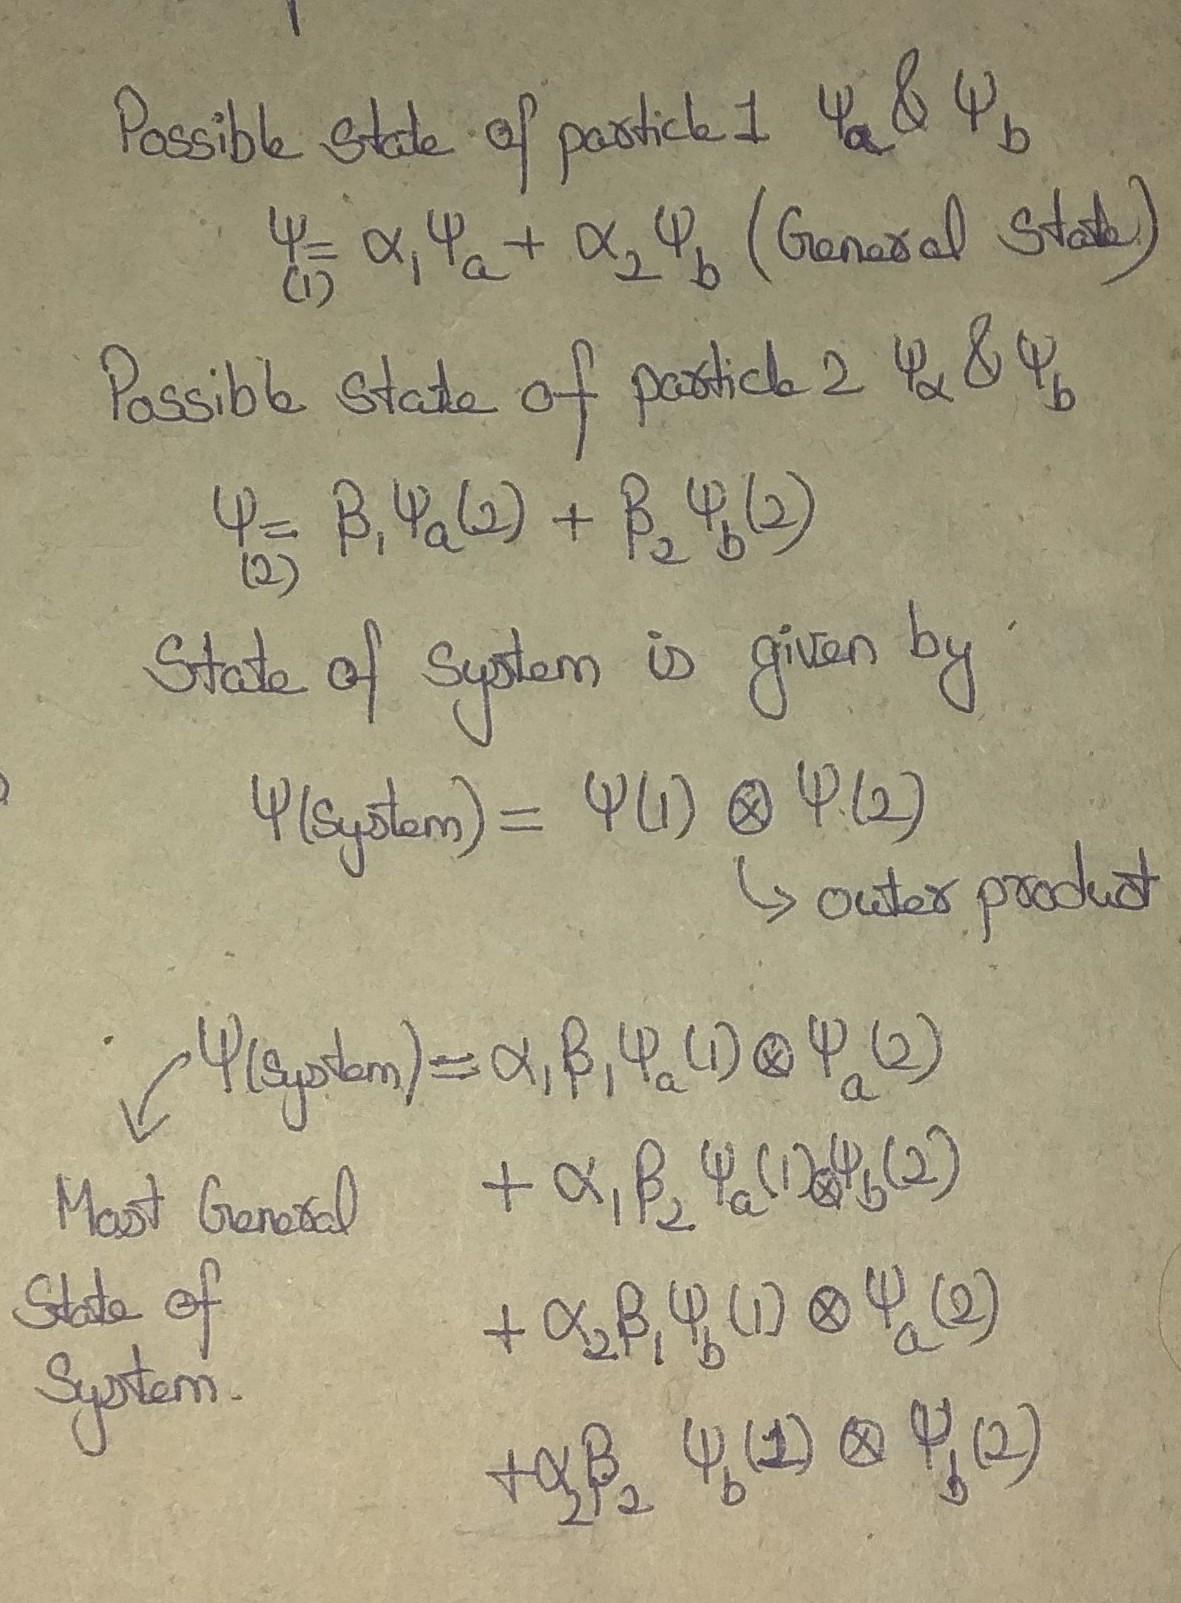 Possible state of particle 1 Ψa & Ψb
Ψ(1) = α₁Ψa + α₂Ψb (General state)
Possible state of particle 2 Ψα & Ψb
Ψ(2) = β₁Ψa(2) + β₂Ψb(2)
State of system is given by
Ψ(system) = Ψ(1) ⊗ Ψ(2)
↳ outer product
Ψ(system) = α₁β₁Ψa(1) ⊗ Ψa(2)
+ α₁β₂Ψa(1) ⊗ Ψb(2)
+ α₂β₁Ψb(1) ⊗ Ψa(2)
+ α₂β₂ Ψb(1) ⊗ Ψb(2)
Most General
State of
System.